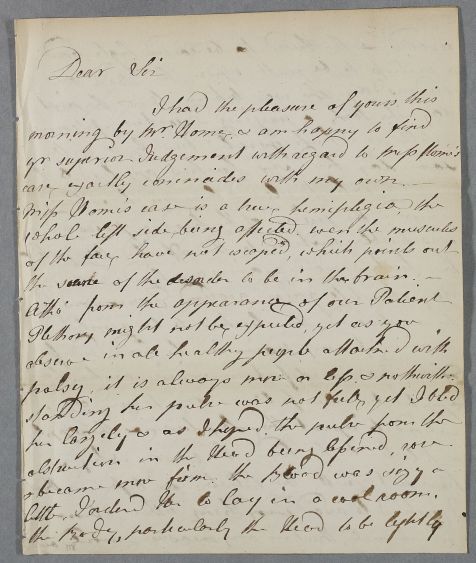 Dear Sir
I had the pleasure of yours this
morning by Mr. Home, & am happy to find
yr superior Judgement with regard to Miss Home's
case exactly coincides with my own. —
Miss Home's case is a true hemiplegia, the
whole left side being affected. even the muscles
of the face have not escaped, which points out
the source of the disorder to be in the brain. —
Altho' from the appearance of our Patient
Plethora might not be expected, yet as you
observe in all healthy people attacked with
palsy it is always more or less. & notwith-
standing her pulse was not full, yet I bled
her largely & as I hoped the pulse from the
obstruction in the Head being lessened, rose
& became more firm. the Blood was sizy a
little. I orderd Her to lay in a cool room,
the Body, particularly the Head to be lightly